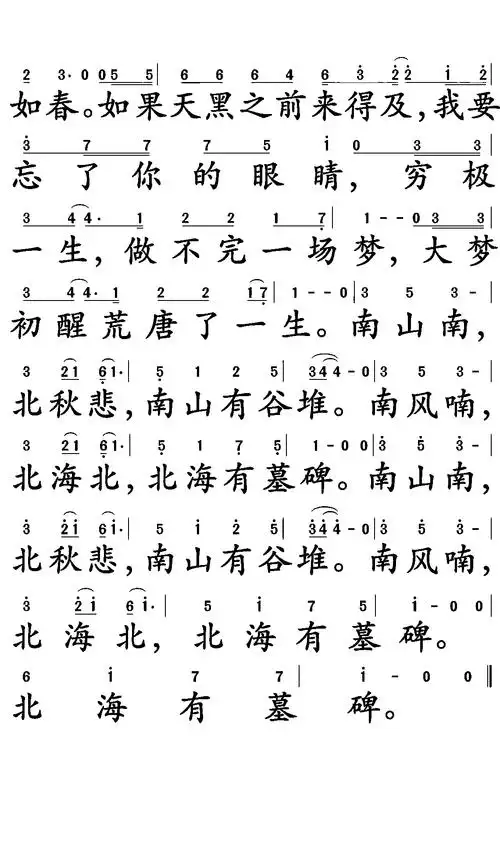 2 3· 0 0 5 5 | 6 6 6 4 6 3 2 2 | 1 2 |
如春。如果天黑之前来得及,我要
3 7 7 7 5 i 0 3 3 |
忘了你的眼睛,穷极
3 4 4· 1 2 2 1 7 | 1 - - 0 3 3 |
一生,做不完一场梦,大梦
3 4 4· 1 2 2 1 7 | 1 - - 0 | 3 5 3 - |
初醒荒唐了一生。南山南,
3 2 1 6 1· | 5 1 2 5 | 3 4 4 - 0 | 3 5 3 - |
北秋悲,南山有谷堆。南风喃,
3 2 1 6 1· | 5 1 7 5 | 1 - 0 0 | 3 5 3 - |
北海北,北海有墓碑。南山南,
3 2 i 6 i· | 5 i 2 5 | 3 4 4 - 0 | 3 5 3 - |
北秋悲,南山有谷堆。南风喃,
3 2 i 6 i· | 5 i 7 5 | i - 0 0 |
北海北,北海有墓碑。
6 i 7 7 | i - 0 0 ‖
北海有墓碑。